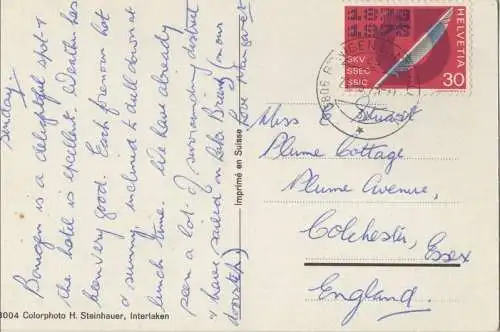 Sunday.
Bönigen is a delightful spot &
the hotel is excellent. Weather has
been very good. Each forenoon hot
& sunny, inclined to dull down at
lunch time. We have already
seen a lot of surrounding district
& have sailed on Lake Brienz (on our
doorstep.)
Love Margaret
3004 Colorphoto H. Steinhauer, Interlaken
Imprimé en Suisse
1873
1973
SKV
SSEC
SSIC
HELVETIA
30
3806 BÖNIGEN
Miss E Stuart
Plume Cottage
Plume Avenue,
Colchester, Essex
England.